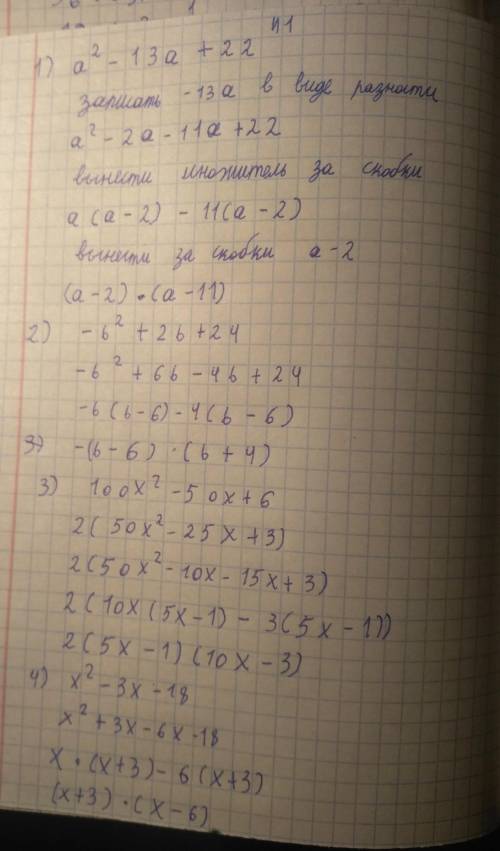 п1
1) a² - 13a + 22
записать -13a в виде разности
a² - 2a - 11a + 22
вынести множитель за скобки
a (a - 2) - 11(a - 2)
вынести за скобки a - 2
(a - 2) • (a - 11)
2) -b² + 2b + 24
-b² + 6b - 4b + 24
-b (b - 6) - 4 (b - 6)
-(b - 6) · (b + 4)
3) 100x² - 50x + 6
2 (50x² - 25x + 3)
2 (50x² - 10x - 15x + 3)
2 (10x (5x - 1) - 3(5x - 1))
2 (5x - 1) (10x - 3)
4) x² - 3x - 18
x² + 3x - 6x - 18
x • (x + 3) - 6 (x + 3)
(x + 3) • (x - 6)